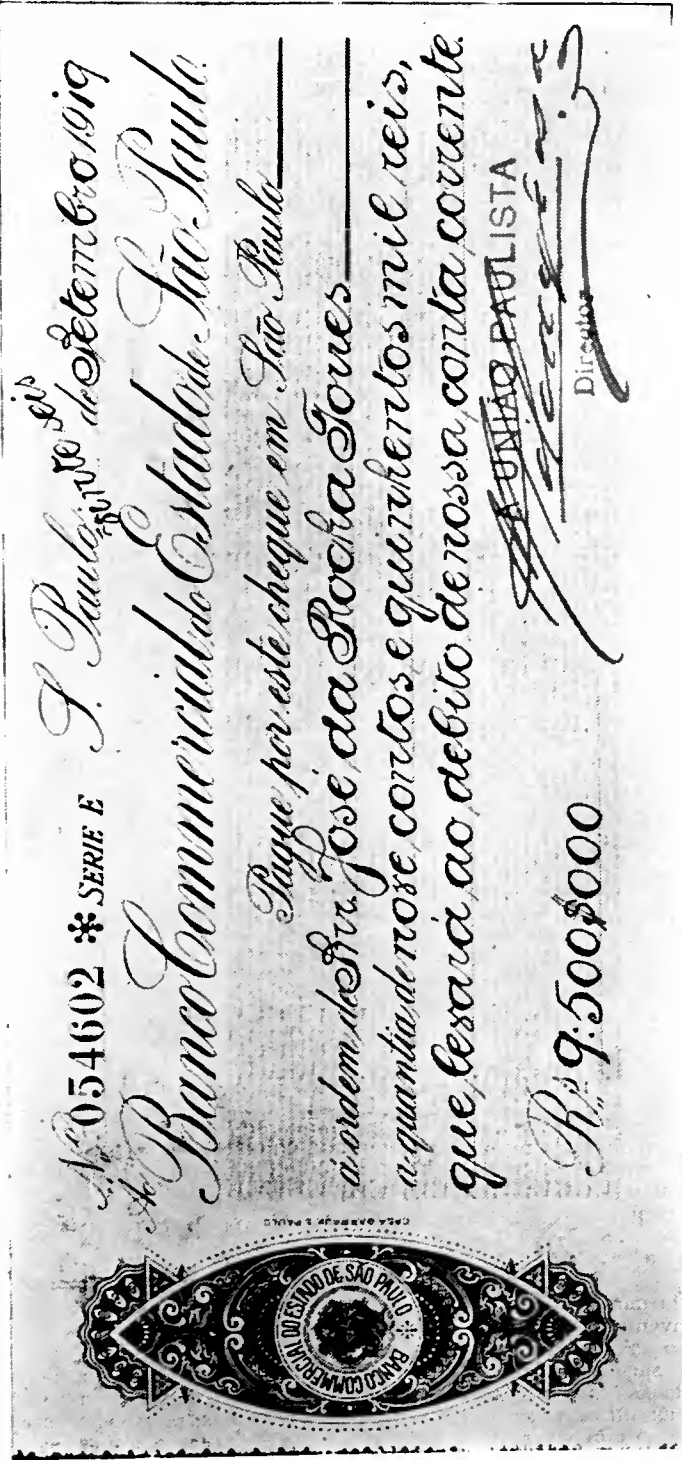 Nº 054602 * SERIE E S. Paulo, vinte seis de Setembro 1919
Ao Banco Commercial do Estado de São Paulo.
Pague por este cheque em São Paulo
á ordem do Snr. José da Rocha Torres
a quantia de nove contos e quinhentos mil reis,
que levará ao debito de nossa conta corrente.
A UNIÃO PAULISTA
Rs 9:500$000
Director
BANCO COMMERCIAL DO ESTADO DE SÃO PAULO